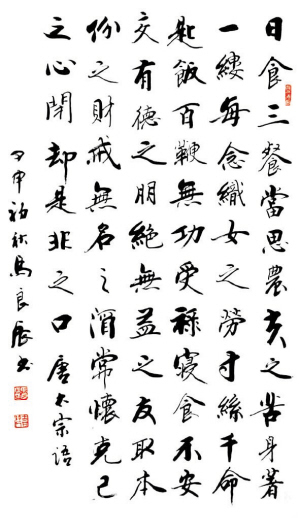 日食三餐當思農夫之苦身著
一縷每念織女之勞寸絲千命
匙飯百鞭無功受祿寢食不安
交有德之朋絕無益之友取本
份之財戒無名之酒常懷克己
之心閉却是非之口唐太宗語
申初秋馬良辰书